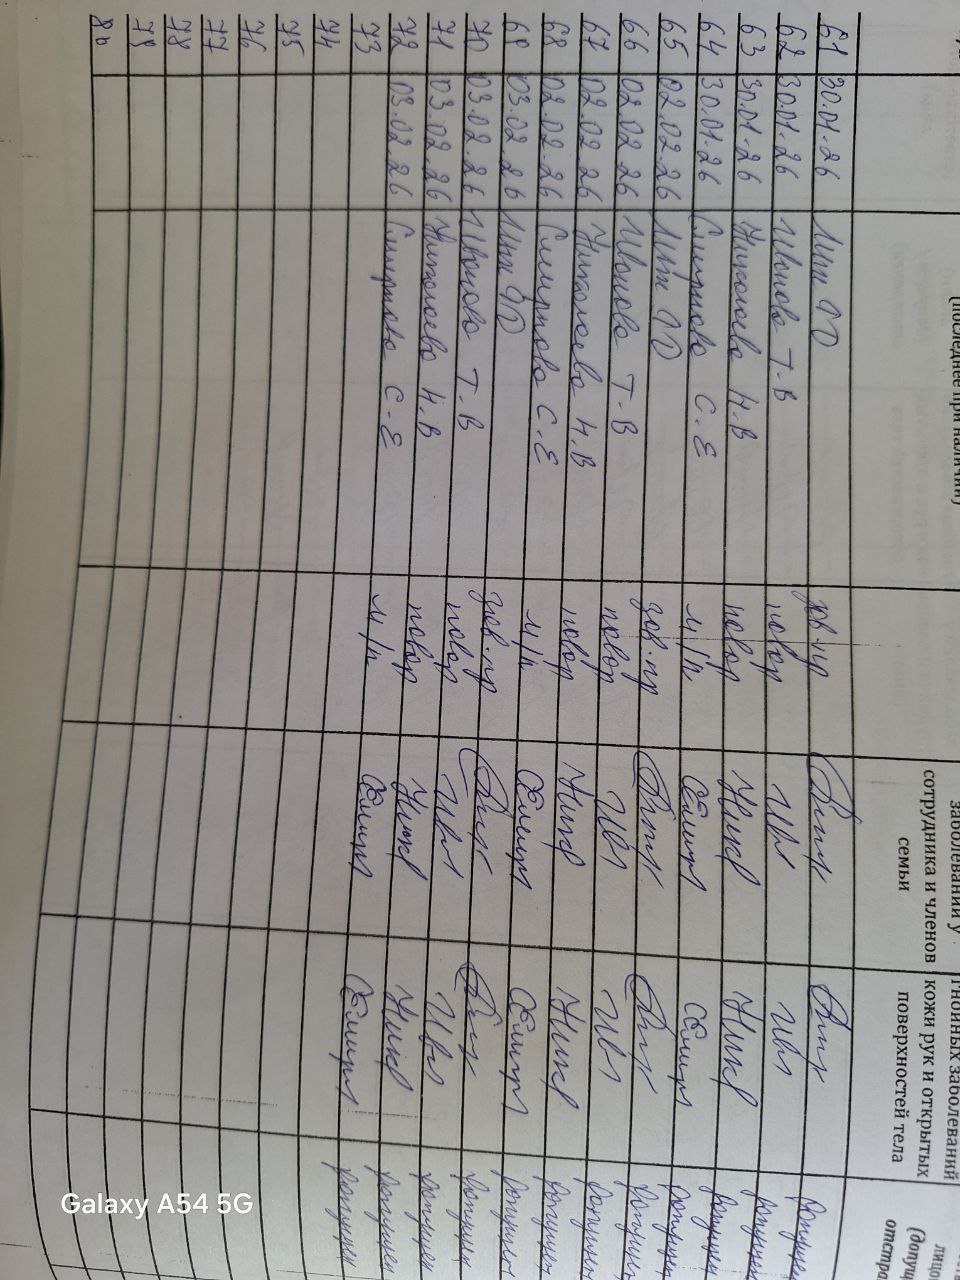 (последнее при наличии)
заболеваний у
сотрудника и членов
семьи
гнойных заболеваний
кожи рук и открытых
поверхностей тела
лицо
61 30.01.26 зав.пр допущен
62 30.01.26 Иванова Т.В повар Ив допущен
63 30.01.26 Николаева Н.В повар Ник допущен
64 30.01.26 Смирнова С.Е м/п Смир допущен
65 02.02.26 зав.пр допущен
66 02.02.26 Иванова Т.В повар Ив допущен
67 02.02.26 Николаева Н.В повар Ник допущен
68 02.02.26 Смирнова С.Е м/п Смир допущен
69 03.02.26 зав.пр допущен
70 03.02.26 Иванова Т.В повар Ив допущен
71 03.02.26 Николаева Н.В повар Ник допущен
72 03.02.26 Смирнова С.Е м/п Смир допущен
73
74
75
76
77
78
79
80
Galaxy A54 5G